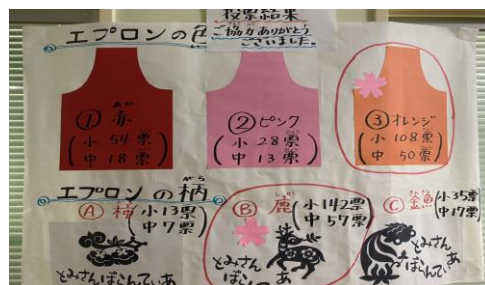 投票結果
ご協力ありがとう
ございました。
エプロンの色
① 赤
あか
小 54票
中 18票
② ピンク
小 28票
中 13票
③ オレンジ
小 108票
中 50票
エプロンの柄
がら
Ⓐ 柿
小13票
中7票
Ⓑ 鹿
しか
小142票
中57票
Ⓒ 金魚
小35票
中17票
とみさん
ばらんてぃあ
とみさん
ばらんてぃ
あ
とみさん
ばらんてぃあ